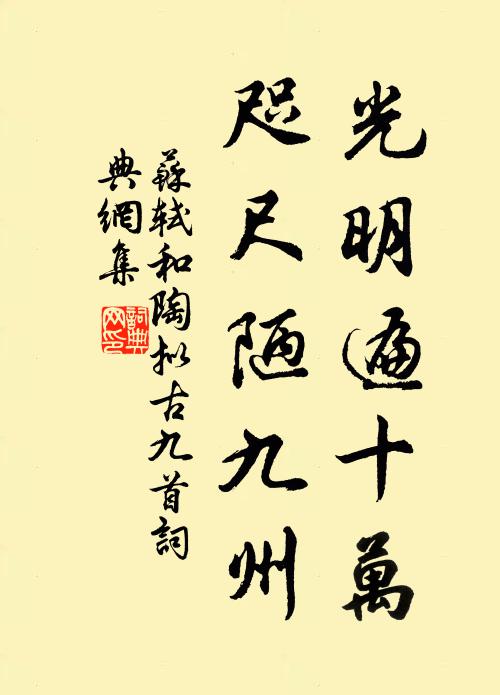 光明遍十萬
咫尺陋九州
蘇軾和陶擬古九首詞
典網集
詞典
网印